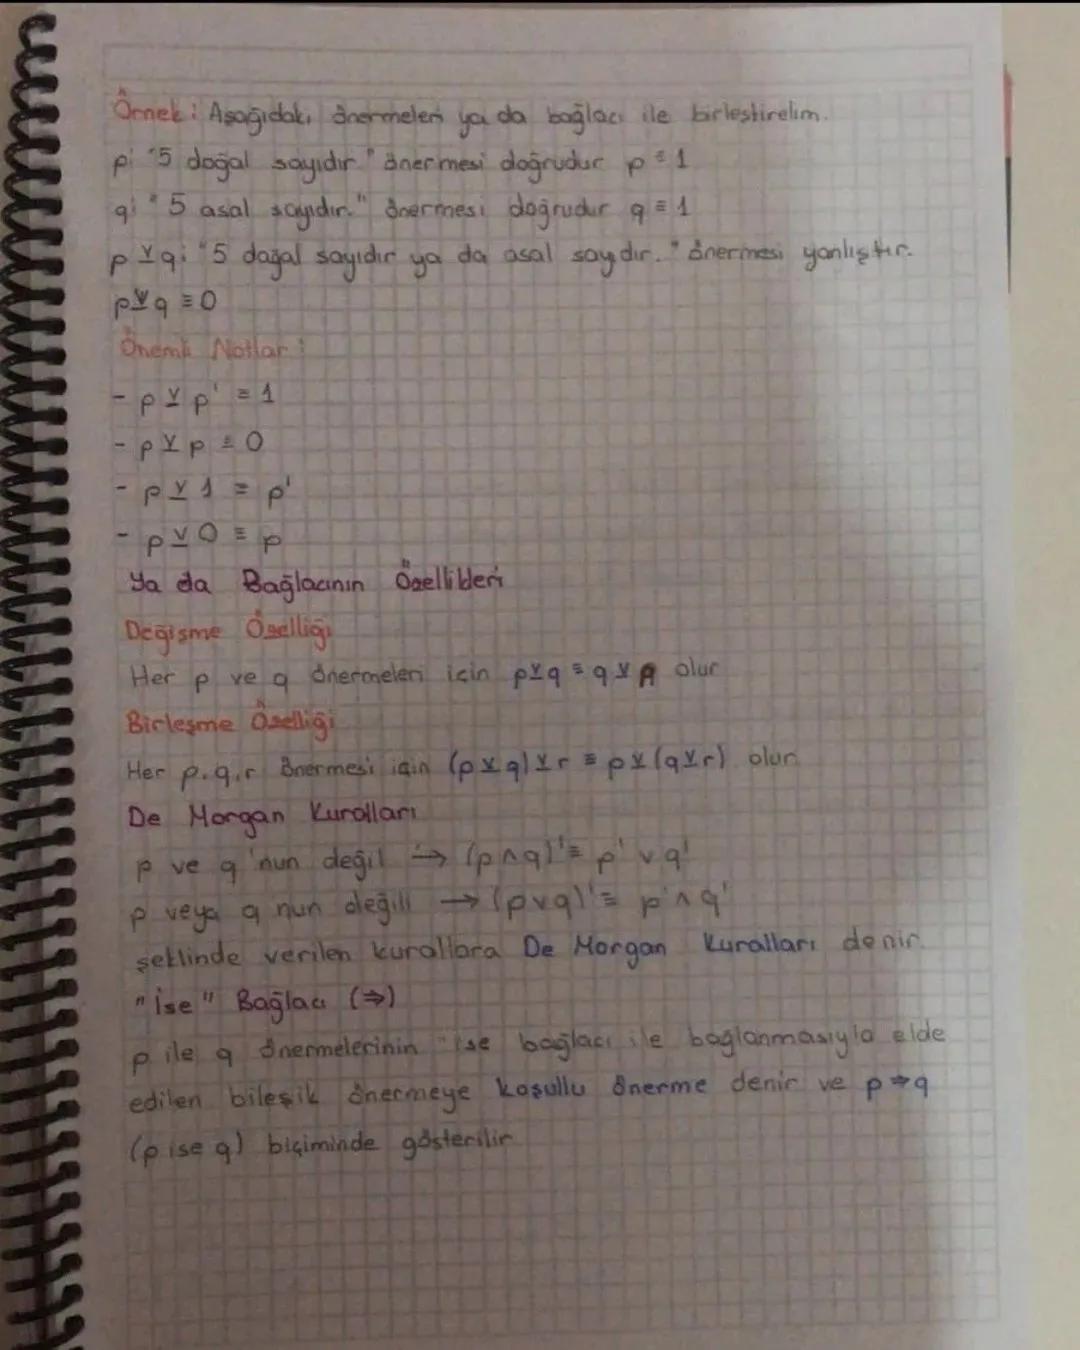 Örnek: Aşağıdaki önermeleri ya da bağlacı ile birleştirelim.
p: "5 doğal sayıdır." önermesi doğrudur p ≡ 1
q: "5 asal sayıdır." önermesi doğrudur q ≡ 1
p ⊻ q: "5 doğal sayıdır ya da asal sayıdır." önermesi yanlıştır.
p ⊻ q ≡ 0
Önemli Notlar:
- p ⊻ p' ≡ 1
- p ⊻ p ≡ 0
- p ⊻ 1 ≡ p'
- p ⊻ 0 ≡ p
Ya da Bağlacının Özellikleri
Değişme Özelliği
Her p ve q önermeleri için p ⊻ q ≡ q ⊻ p olur
Birleşme Özelliği
Her p,q,r önermesi için (p ⊻ q) ⊻ r ≡ p ⊻ (q ⊻ r) olur.
De Morgan Kuralları
p ve q'nun değil → (p ∧ q)' ≡ p' ∨ q'
p veya q nun değili → (p ∨ q)' ≡ p' ∧ q'
şeklinde verilen kurallara De Morgan Kuralları denir.
"İse" Bağlacı (⇒)
p ile q önermelerinin "ise bağlacı ile bağlanmasıyla elde
edilen bileşik önermeye koşullu önerme denir ve p ⇒ q
(p ise q) biçiminde gösterilir